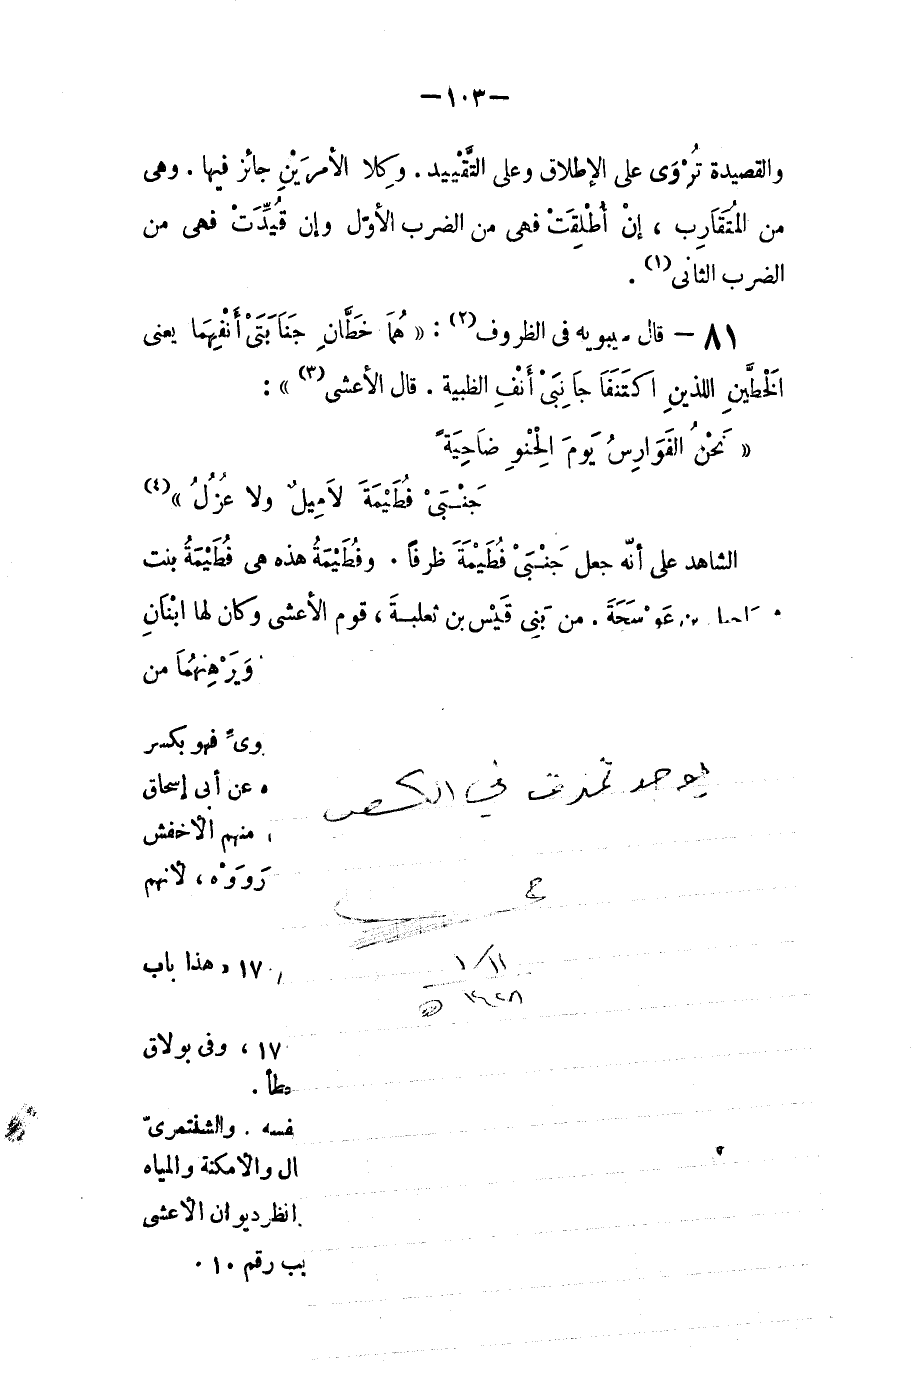 —١٠٣—
والقصيدة تُرْوَى على الإطلاق وعلى التَّقْييد . وكِلا الأمرَيْنِ جائز فيها . وهى
من المُتَقَارِب ، إنْ أُطْلِقَتْ فهى من الضرب الأوّل وإن قُيِّدَتْ فهى من
الضرب الثانى(١) .
٨١ — قال سيبويه فى الظروف(٢) : « هُمَا خَطَّانِ جَنَابَتَىْ أَنْفِهِمَا يعنى
الخَطَّينِ اللذينِ اكتَنَفَا جَانِبَىْ أَنْفِ الظبية . قال الأعشى(٣) » :
« نَحْنُ الفَوَارِسُ يَومَ الحِنْوِ ضَاحِيَةً
جَنْبَىْ فُطَيْمَةَ لاَمِيلٌ ولا عُزُلُ »(٤)
الشاهد على أنّه جعل جَنْبَىْ فُطَيْمَةَ ظرفًا . وفُطَيْمَةُ هذه هى فُطَيْمَةُ بنت
بن عَوْسَحَةَ . من بَنِى قَيْس بن ثعلبـة ، قوم الأعشى وكان لها ابْنَانِ
وَيَرْهِنهُمَا من
فهو بكسر
عن أبى إسحاق
منهم الأخفش
رَوَوْه ، لأنهم
يوجد تمزق في الكعب
ح
١١/١
١٧٠ « هذا باب
١٧ ، وفى بولاق
والشنتمرىّ
والأمكنة والمياه
انظر ديوان الأعشى
رقم ١٠ .